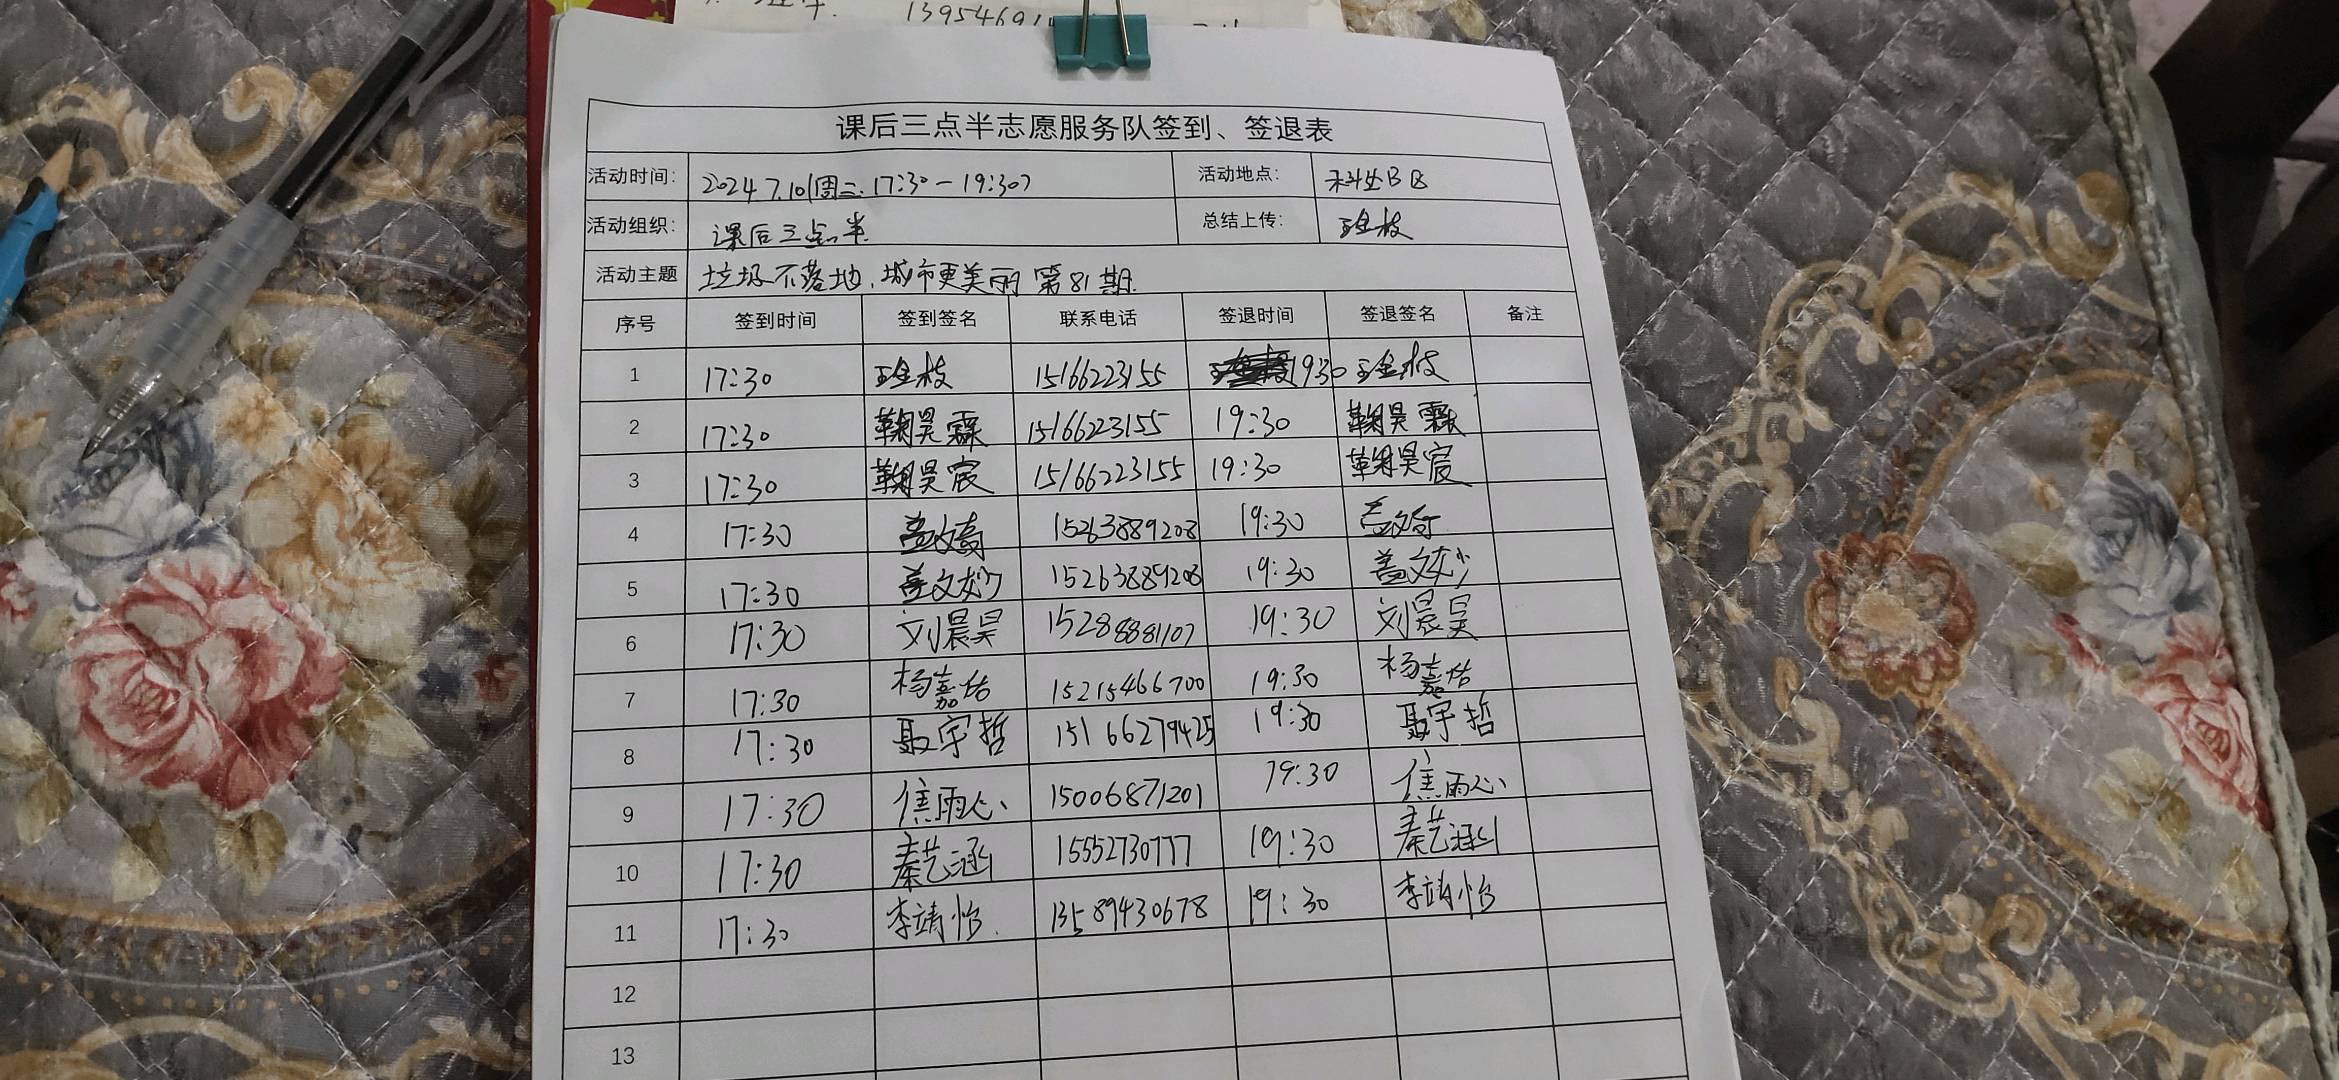 课后三点半志愿服务队签到、签退表
活动时间： 2024 7.10(周三.17:30-19:30) 活动地点： 科处B区
活动组织： 课后三点半 总结上传：
活动主题 垃圾不落地.城市更美丽 第81期.
序号 签到时间 签到签名 联系电话 签退时间 签退签名 备注
1 17:30 15166223155 19:30
2 17:30 鞠昊霖 15166223155 19:30 鞠昊霖
3 17:30 鞠昊宸 15166223155 19:30 鞠昊宸
4 17:30 15263889208 19:30
5 17:30 盖文妙 15263889208 19:30 盖文妙
6 17:30 刘晨昊 15288881107 19:30 刘晨昊
7 17:30 杨嘉佑 15215466700 19:30 杨嘉佑
8 17:30 聂宇哲 15166279425 19:30 聂宇哲
9 17:30 焦雨心 15006871201 19:30 焦雨心
10 17:30 秦艺涵 15552730777 19:30 秦艺涵
11 17:30 李靖怡 13589430678 19:30 李靖怡
12
13